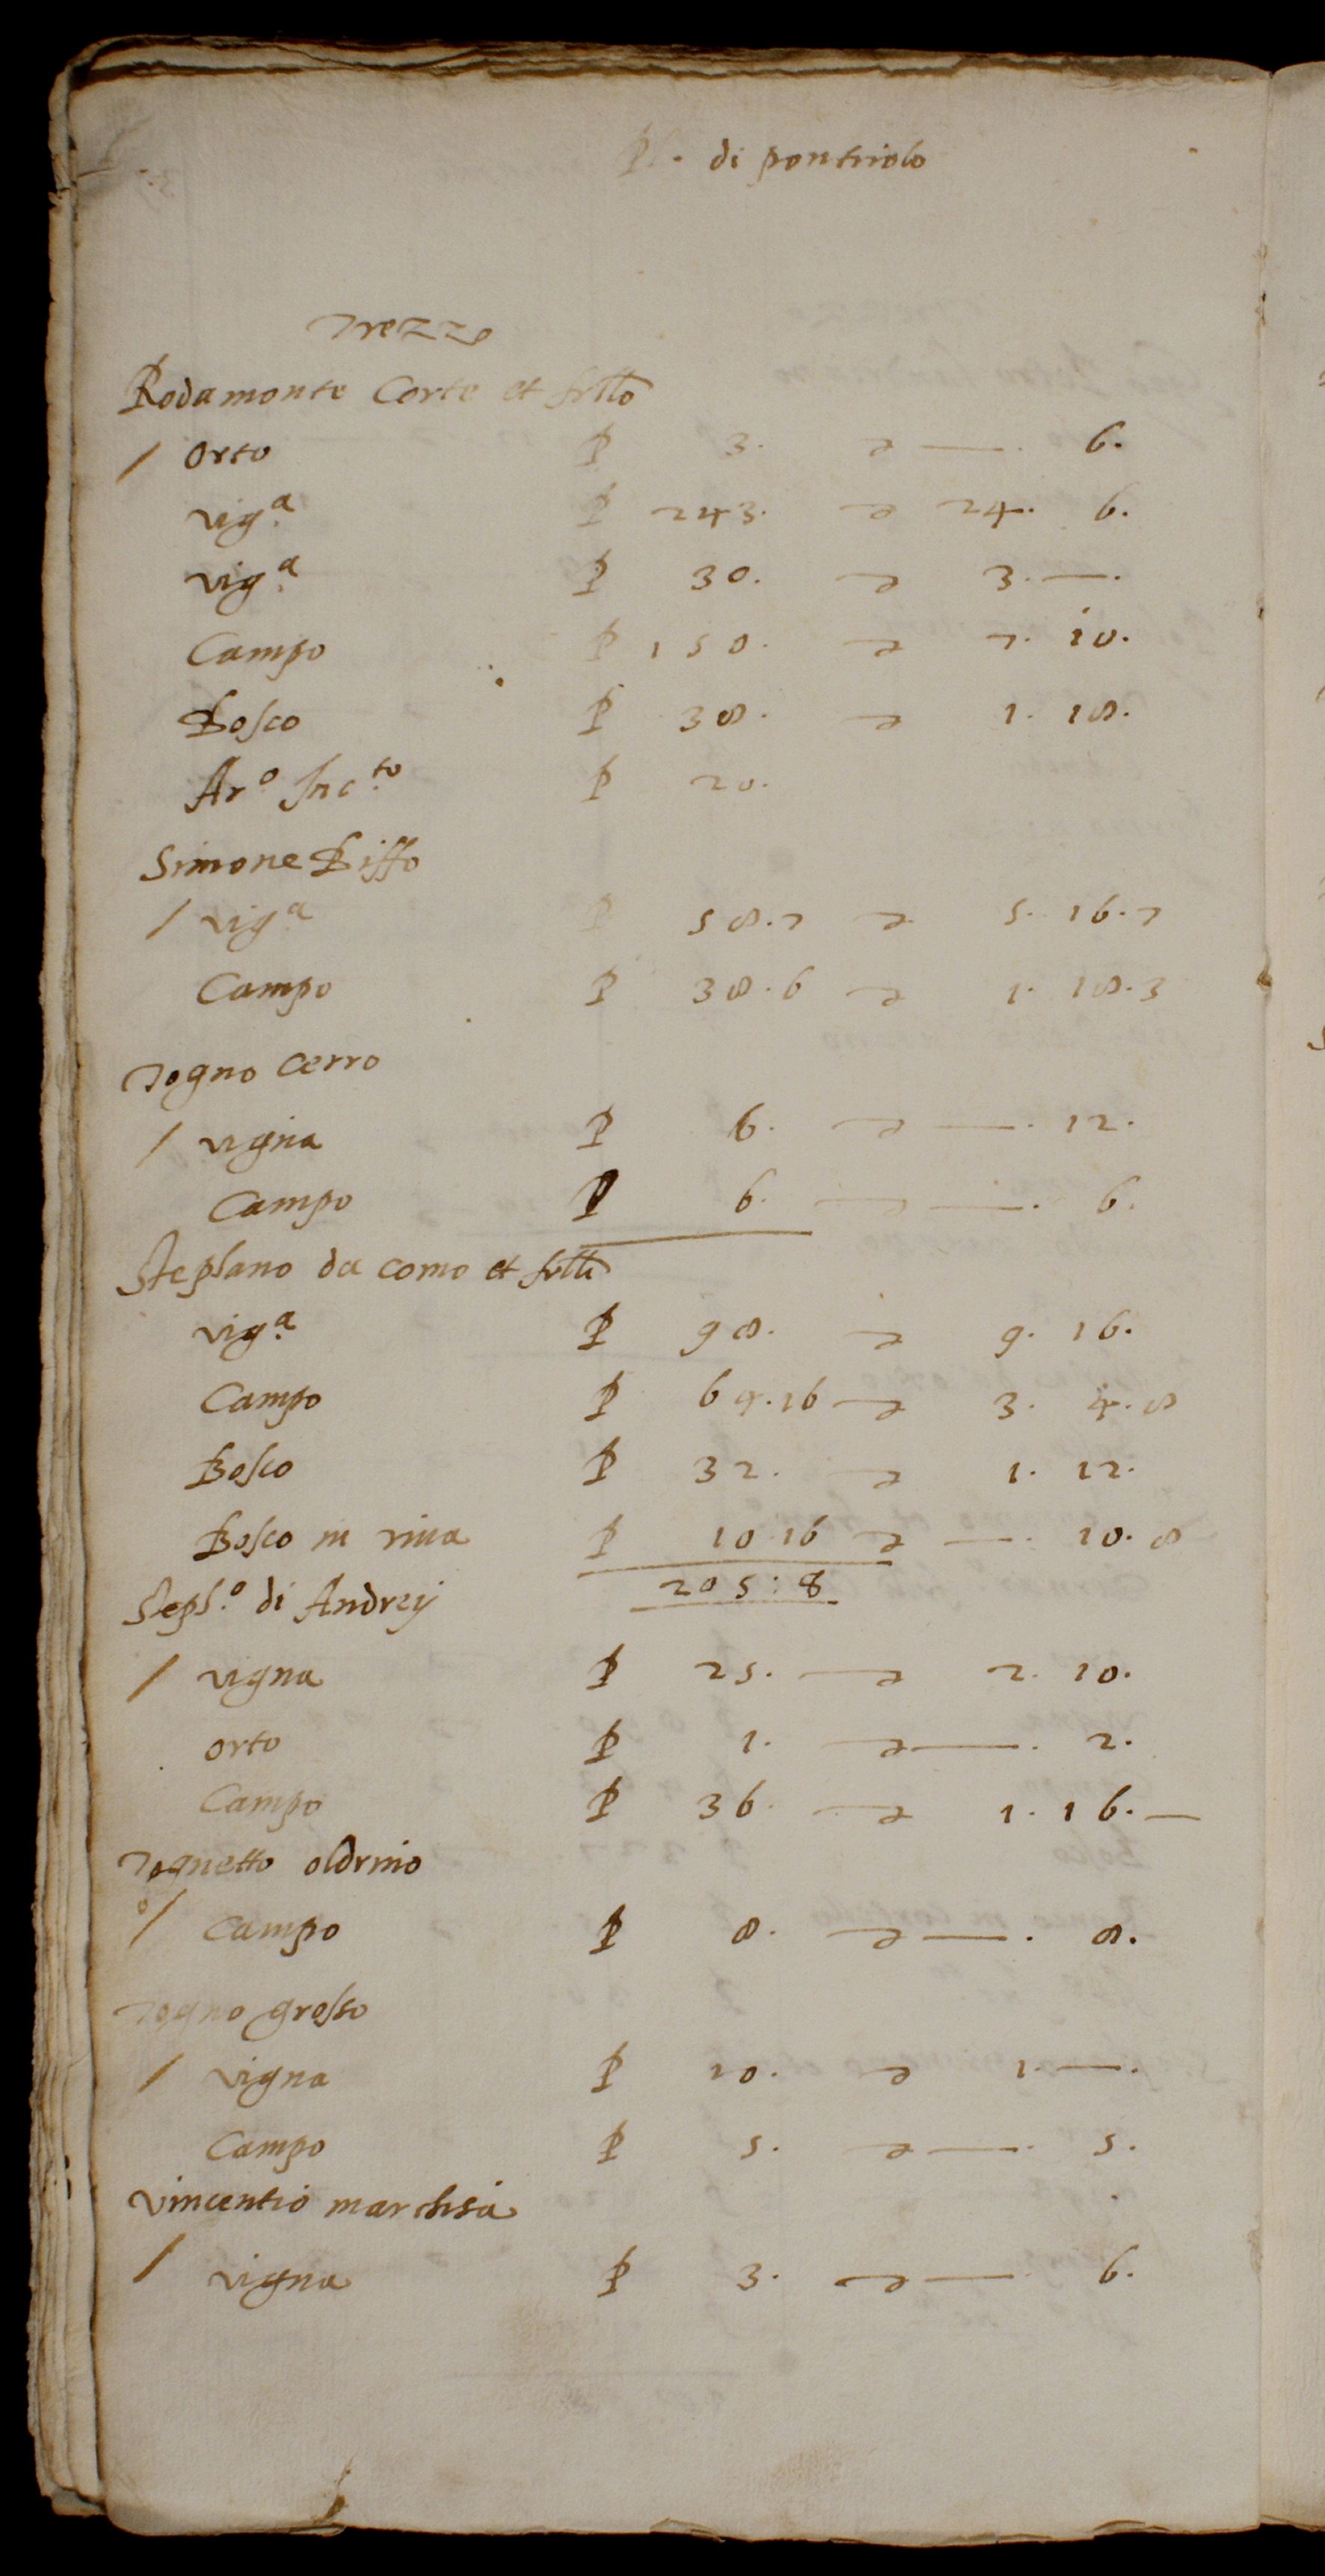 Pl. di pontriolo
Trezzo
Rodamonte Corte et frllo
/ Orto P 3. — 6.
vig.a P 243. 24. 6.
vig.a P 30. 3. —.
Campo P 150. 7. 10.
Bosco P 38. 1. 18.
Ar.o Inc.to P 20.
Simone Biffo
/ vig.a P 58.7 5. 16.7
Campo P 38.6 1. 18.3
Togno Cerro
/ vigna P 6. —. 12.
Campo P 6. —. 6.
Stephano da como et frlli
vig.a P 98. 9. 16.
Campo P 64.16 3. 4.8
Bosco P 32. 1. 12.
Bosco in riva P 10.16 —. 10.8
205:8
Steph.o di Andrey
/ vigna P 25. 2. 10.
orto P 1. —. 2.
Campo P 36. 1. 16. —
Tognetto oldrino
o/ Campo P 8. —. 8.
Togno grosso
/ vigna P 10. 1. —.
Campo P 5. —. 5.
Vincentio marchisa
/ vigna P 3. — 6.